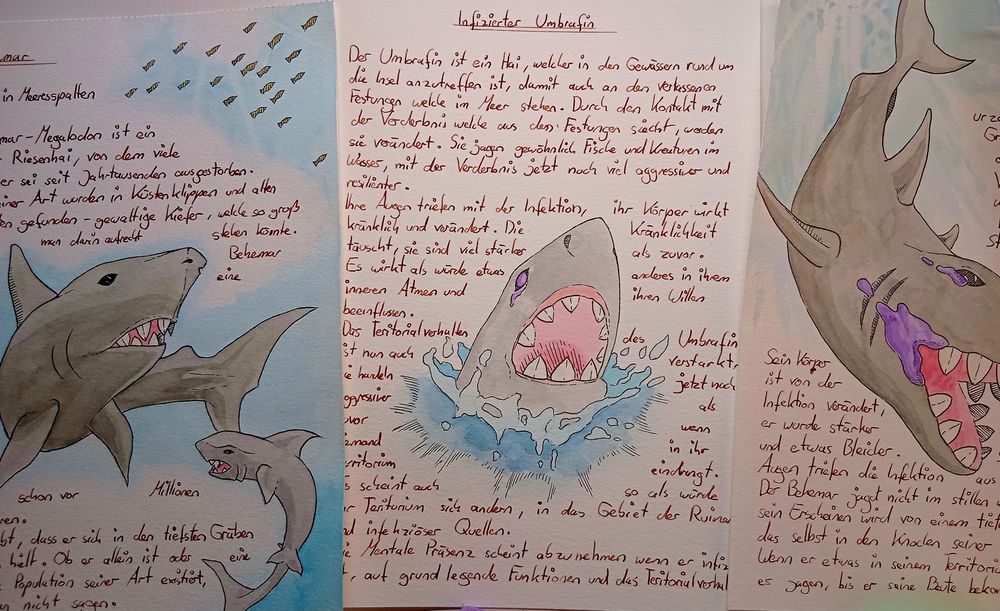 mar
in Meeresspalten
mar-Megalodon ist ein
Riesenhai, von dem viele
er sei seit Jahrtausenden ausgestorben.
einer Art wurden in Küstenklippen und alten
en gefunden - gewaltige Kiefer, welche so groß
man darin aufrecht stehen konnte.
Behemar
eine
schon vor Millionen
ren.
bt, dass er sich in den tiefsten Gräben
hält. Ob er allein ist oder eine
Population seiner Art existiert,
n nicht sagen.
Infizierter Umbrafin
Der Umbrafin ist ein Hai, welcher in den Gewässern rund um
die Insel anzutreffen ist, damit auch an den verlassenen
Festungen welche im Meer stehen. Durch den Kontakt mit
der Vorderbnis welche aus den Festungen siecht, worden
sie verändert. Sie jagen gewöhnlich Fische und Kreaturen im
Wasser, mit der Verderbnis jetzt noch viel aggressiver und
resilienter.
Ihre Augen triefen mit der Infektion, ihr Körper wirkt
kränklich und verändert. Die Kränklichkeit
täuscht, sie sind viel stärker als zuvor.
Es wirkt als würde etwas anderes in ihrem
inneren Atmen und ihren Willen
beeinflussen.
Das Teritorialverhalten des Umbrafin
ist nun auch verstärkt,
ie handeln jetzt noch
aggressiver als
vor wenn
emand in ihr
erritorium eindrangt.
s scheint auch so als würde
r Teritorium sich ändern, in das Gebiet der Ruine
d infektiöser Quellen.
ie Mentale Präsenz scheint abzunehmen wenn er infiz
t, auf grund legende Funktionen und das Teritorialverhal
urze
Sein Körper
ist von der
Infektion verändert,
er wurde stärker
und etwas Bleicher.
Augen triefen die Infektion aus
Der Behemar jagt nicht im stillen
sein Erscheinen wird von einem tief
das selbst in den Knochen seiner
Wenn er etwas in seinem Territorio
es jagen, bis er seine Beute beko